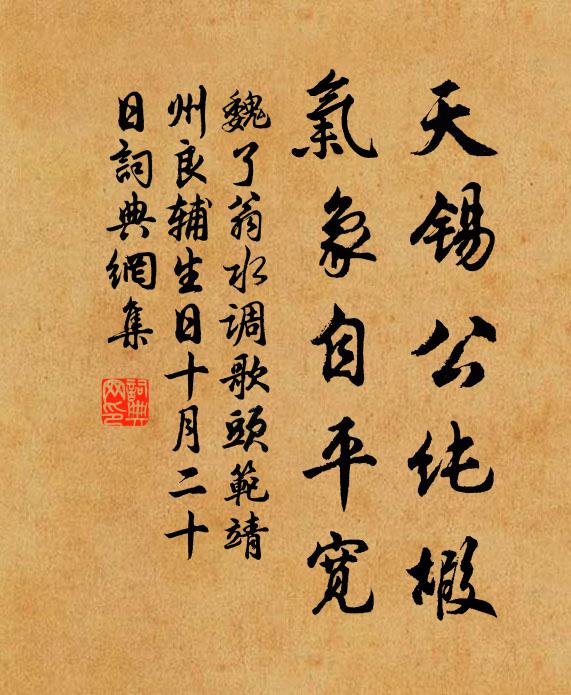 天锡公纯嘏
氣象自平寬
魏了翁水调歌頭範靖
州良辅生日十月二十
日詞典網集
詞典
网印